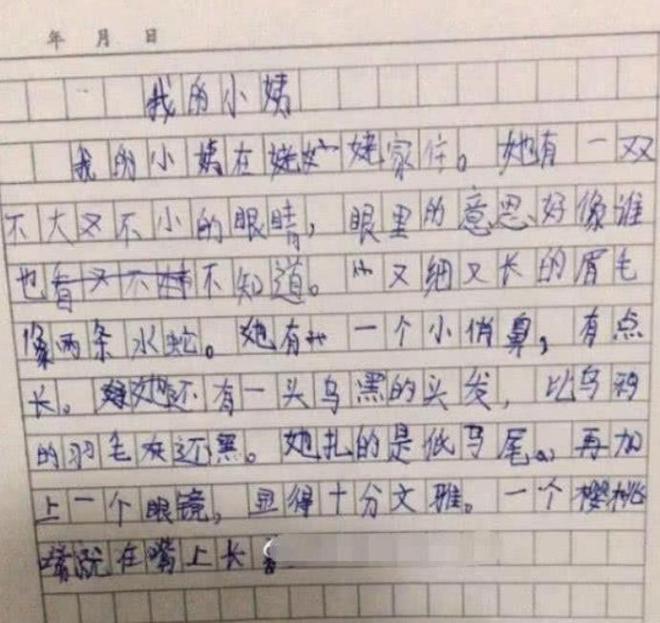 年 月 日
我的小姨
我的小姨在姥姥家住。她有一双
不大又不小的眼睛,眼里的意思好像谁
也不知道。又细又长的眉毛
像两条水蛇。她有一个小俏鼻,有点
长。她还有一头乌黑的头发,比乌鸦
的羽毛还黑。她扎的是低马尾。再加
上一个眼镜,显得十分文雅。一个樱桃
嘴就在嘴上长